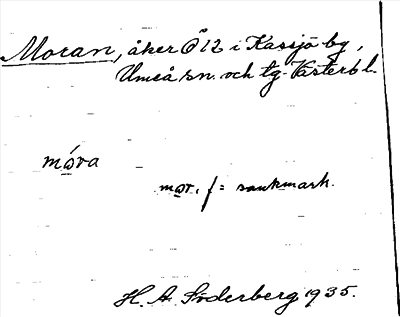 Moran, åker Ö12 i Kassjö by,
Umeå sn. och tg. Västerb l.
mó̲va
mo̲r, f = sankmark.
H. A. Söderberg 1935.